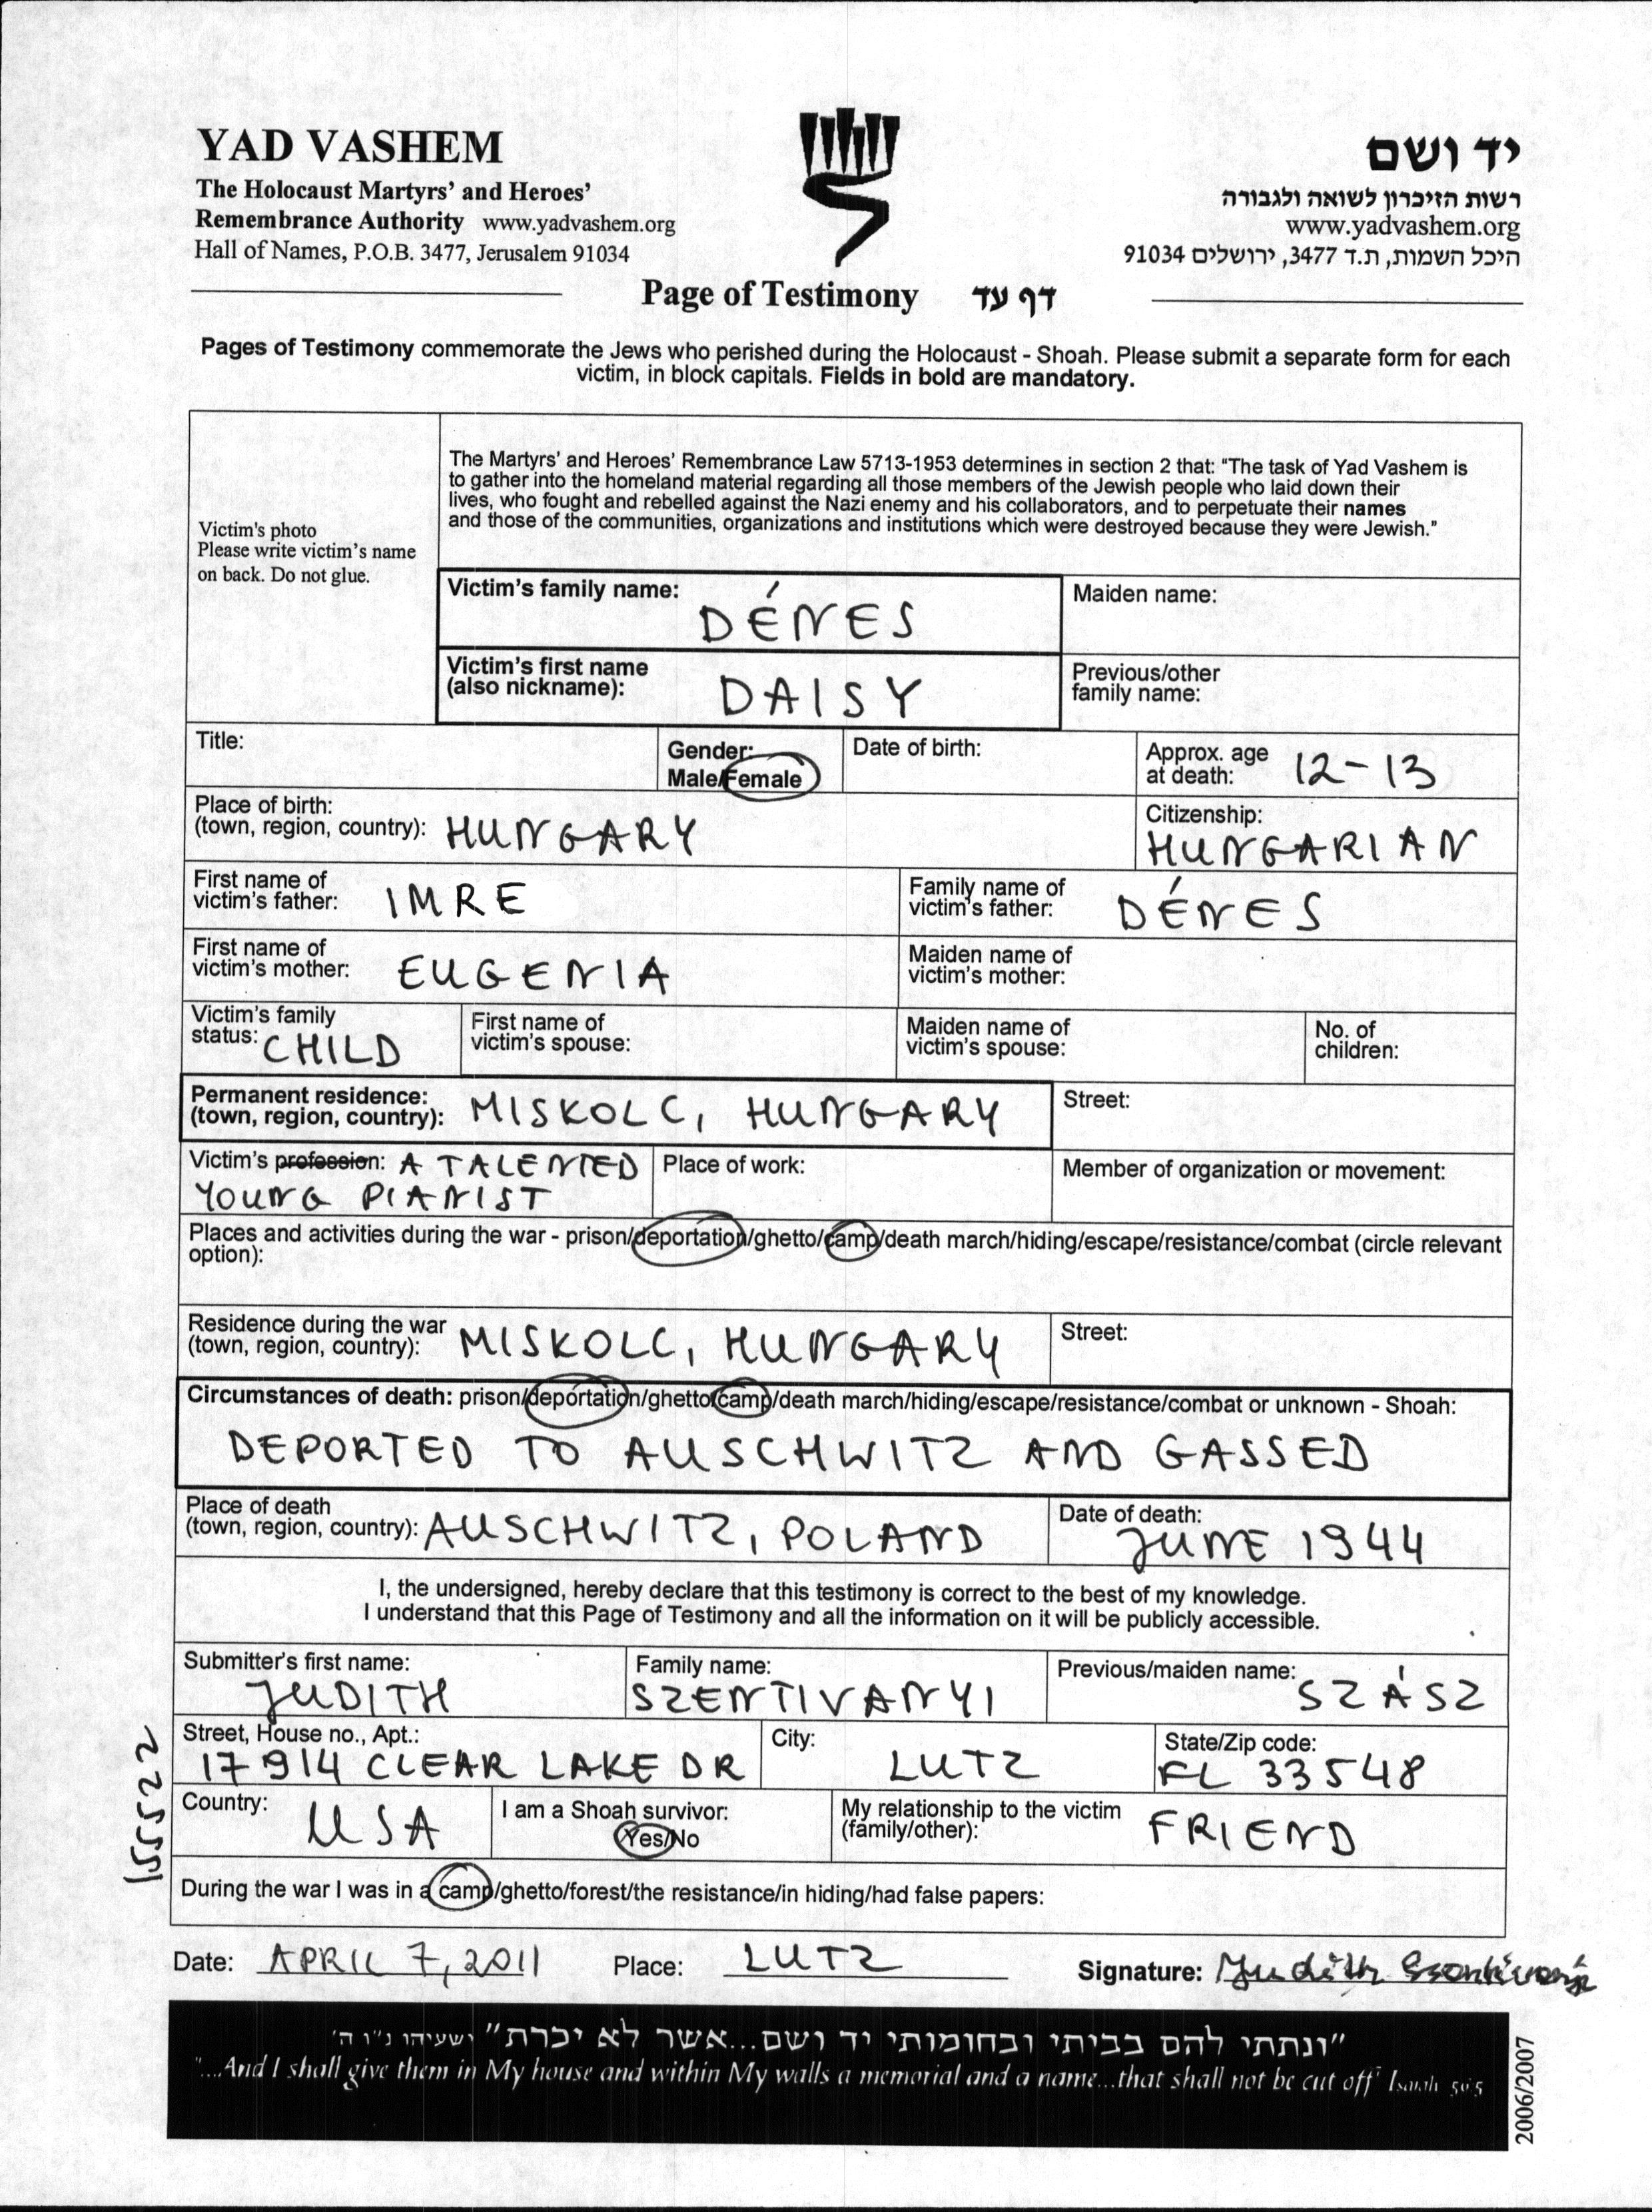 YAD VASHEM
The Holocaust Martyrs' and Heroes'
Remembrance Authority www.yadvashem.org
Hall of Names, P.O.B. 3477, Jerusalem 91034
יד ושם
רשות הזיכרון לשואה ולגבורה
www.yadvashem.org
היכל השמות, ת.ד 3477, ירושלים 91034
Page of Testimony דף עד
Pages of Testimony commemorate the Jews who perished during the Holocaust - Shoah. Please submit a separate form for each
victim, in block capitals. Fields in bold are mandatory.
Victim's photo
Please write victim's name
on back. Do not glue.
The Martyrs' and Heroes' Remembrance Law 5713-1953 determines in section 2 that: "The task of Yad Vashem is
to gather into the homeland material regarding all those members of the Jewish people who laid down their
lives, who fought and rebelled against the Nazi enemy and his collaborators, and to perpetuate their names
and those of the communities, organizations and institutions which were destroyed because they were Jewish."
Victim's family name: DÉNES
Maiden name:
Victim's first name
(also nickname): DAISY
Previous/other
family name:
Title:
Gender:
Male/Female
Date of birth:
Approx. age
at death: 12-13
Place of birth:
(town, region, country): HUNGARY
Citizenship:
HUNGARIAN
First name of
victim's father: IMRE
Family name of
victim's father: DÉNES
First name of
victim's mother: EUGENIA
Maiden name of
victim's mother:
Victim's family
status: CHILD
First name of
victim's spouse:
Maiden name of
victim's spouse:
No. of
children:
Permanent residence:
(town, region, country): MISKOLC, HUNGARY
Street:
Victim's profession: A TALENTED
YOUNG PIANIST
Place of work:
Member of organization or movement:
Places and activities during the war - prison/deportation/ghetto/camp/death march/hiding/escape/resistance/combat (circle relevant
option):
Residence during the war
(town, region, country): MISKOLC, HUNGARY
Street:
Circumstances of death: prison/deportation/ghetto/camp/death march/hiding/escape/resistance/combat or unknown - Shoah:
DEPORTED TO AUSCHWITZ AND GASSED
Place of death
(town, region, country): AUSCHWITZ, POLAND
Date of death:
JUNE 1944
I, the undersigned, hereby declare that this testimony is correct to the best of my knowledge.
I understand that this Page of Testimony and all the information on it will be publicly accessible.
Submitter's first name:
JUDITH
Family name:
SZENTIVANYI
Previous/maiden name:
SZÁSZ
Street, House no., Apt.:
17914 CLEAR LAKE DR
City:
LUTZ
State/Zip code:
FL 33548
Country: USA
I am a Shoah survivor:
Yes/No
My relationship to the victim
(family/other): FRIEND
During the war I was in a camp/ghetto/forest/the resistance/in hiding/had false papers:
155522
Date: APRIL 7, 2011 Place: LUTZ Signature: Judith Szentivanyi
"ונתתי להם בביתי ובחומותי יד ושם...אשר לא יכרת" ישעיהו נ"ו ה'
"...And I shall give them in My house and within My walls a memorial and a name...that shall not be cut off" Isaiah 56:5
2006/2007